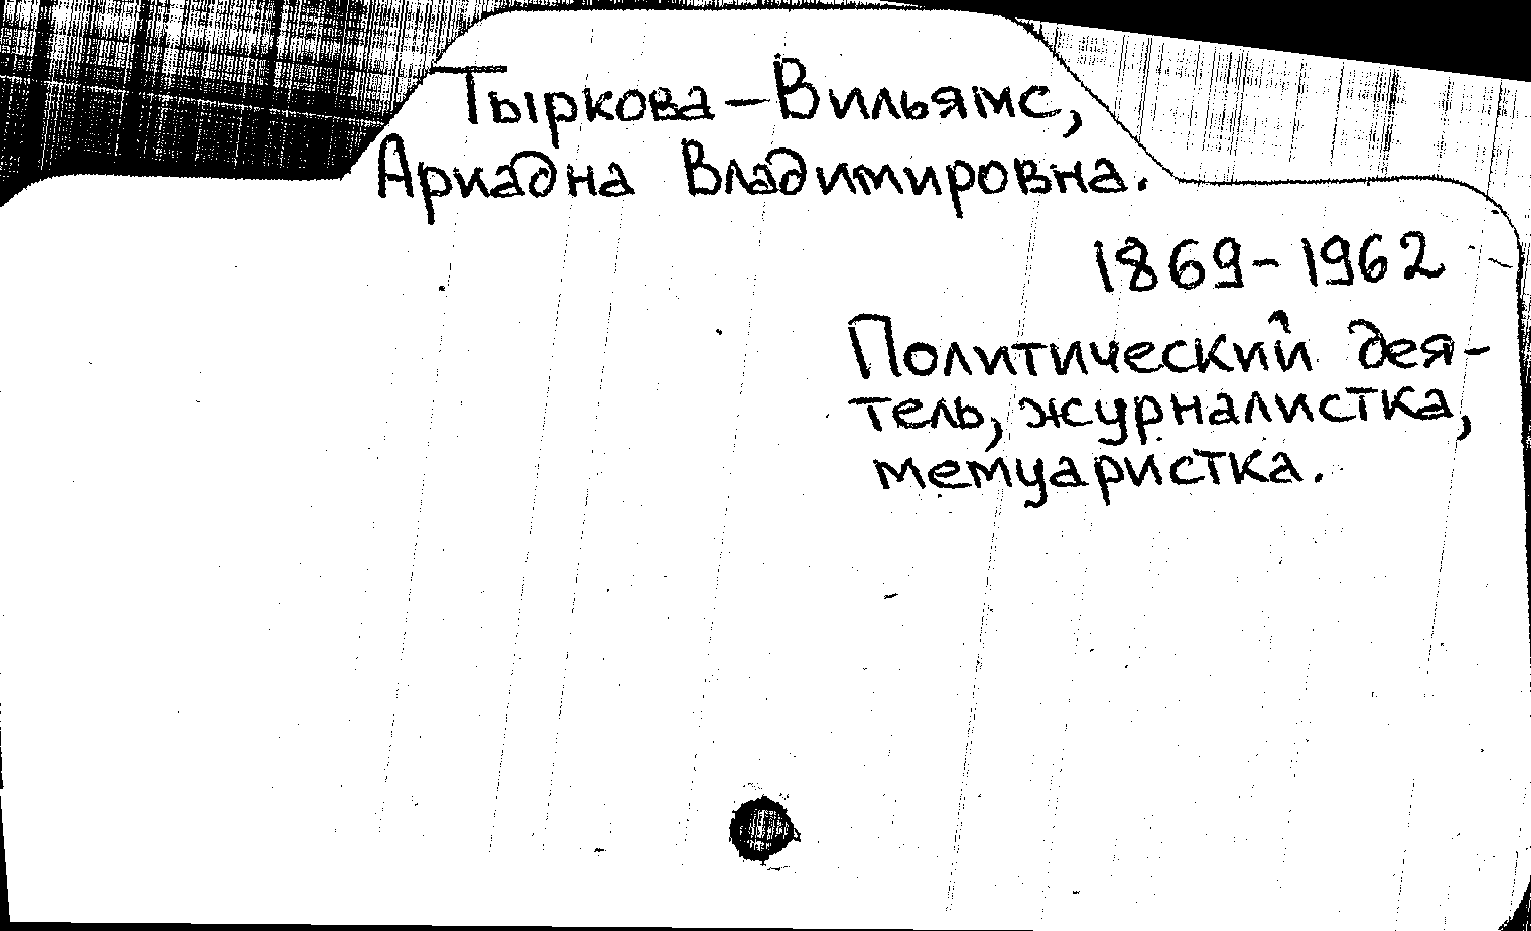 Тыркова-Вильямс,
Ариадна Владимировна.
1869-1962
Политический дея-
тель, журналистка,
мемуаристка.